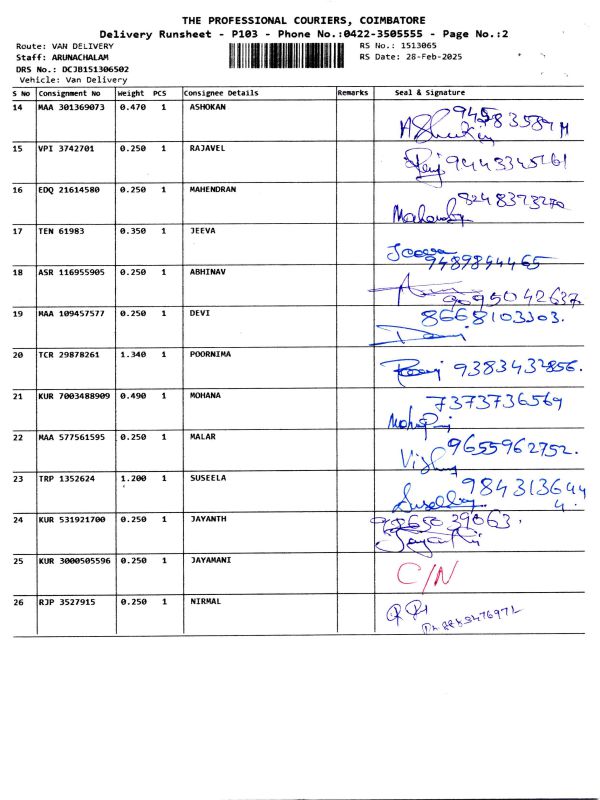 THE PROFESSIONAL COURIERS, COIMBATORE
Delivery Runsheet - P103 - Phone No.:0422-3505555 - Page No.:2
Route: VAN DELIVERY RS No.: 1513065
Staff: ARUNACHALAM RS Date: 28-Feb-2025
DRS No.: DCJB151306502
Vehicle: Van Delivery
S No Consignment No Weight PCS Consignee Details Remarks Seal & Signature
14 MAA 301369073 0.470 1 ASHOKAN
15 VPI 3742701 0.250 1 RAJAVEL
16 EDQ 21614580 0.250 1 MAHENDRAN 8248373270
17 TEN 61983 0.350 1 JEEVA Jeeva
9489844465
18 ASR 116955905 0.250 1 ABHINAV 9095042637
19 MAA 109457577 0.250 1 DEVI 8668103303.
20 TCR 29878261 1.340 1 POORNIMA 9383432856.
21 KUR 7003488909 0.490 1 MOHANA 7373736569
22 MAA 577561595 0.250 1 MALAR 9655962752.
23 TRP 1352624 1.200 1 SUSEELA 984313644
4.
24 KUR 531921700 0.250 1 JAYANTH
25 KUR 3000505596 0.250 1 JAYAMANI C/N
26 RJP 3527915 0.250 1 NIRMAL